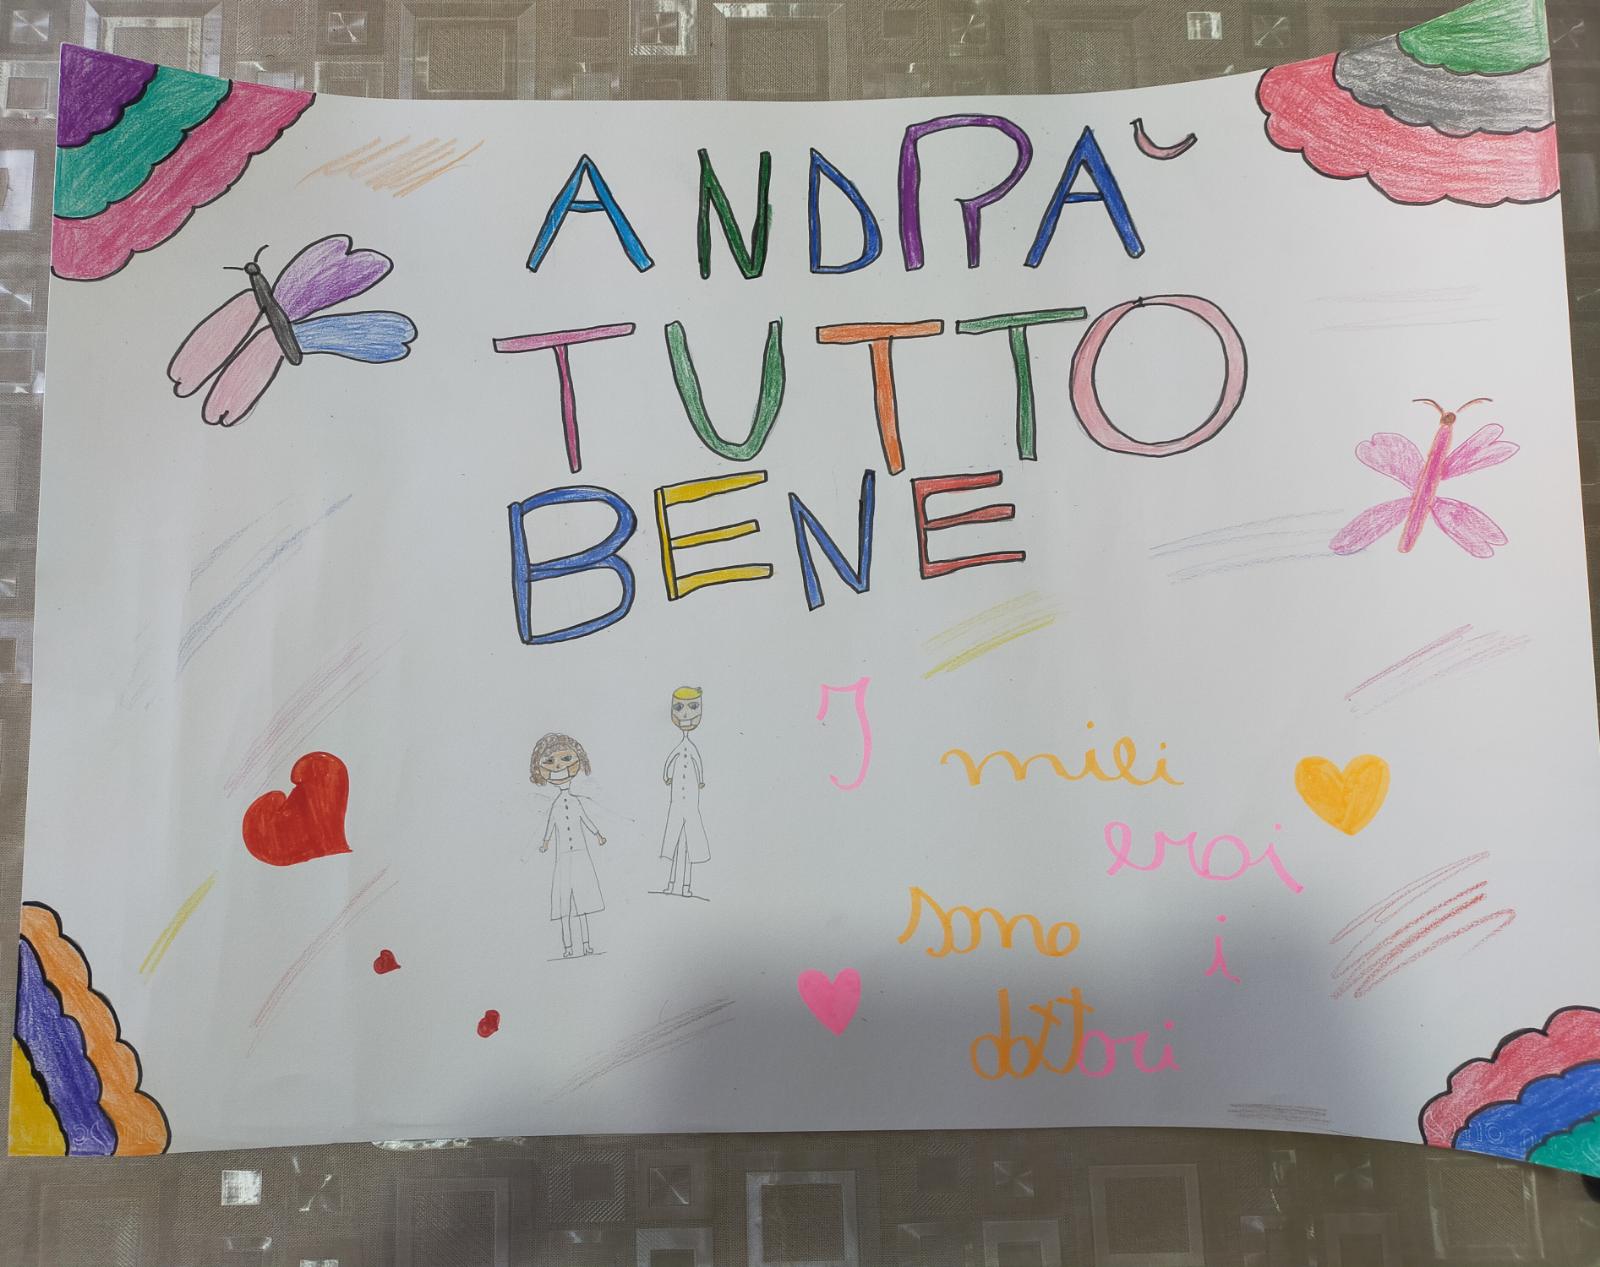 ANDRA˘
TUTTO
BENE
I miei
eroi
sono i
dottori